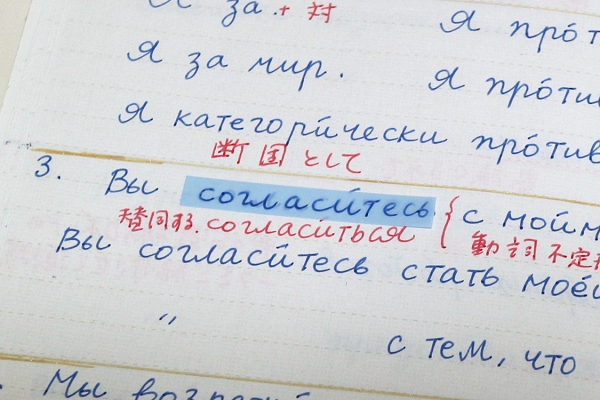 Я за. + 対
Я про́т
Я за мир.
Я про́тив
Я категори́чески про́тив
断固として
3. Вы согласи́тесь { с мои́м
賛同する. согласи́ться
動詞不定
Вы согласи́тесь стать мое́й
"
с тем, что
Мы